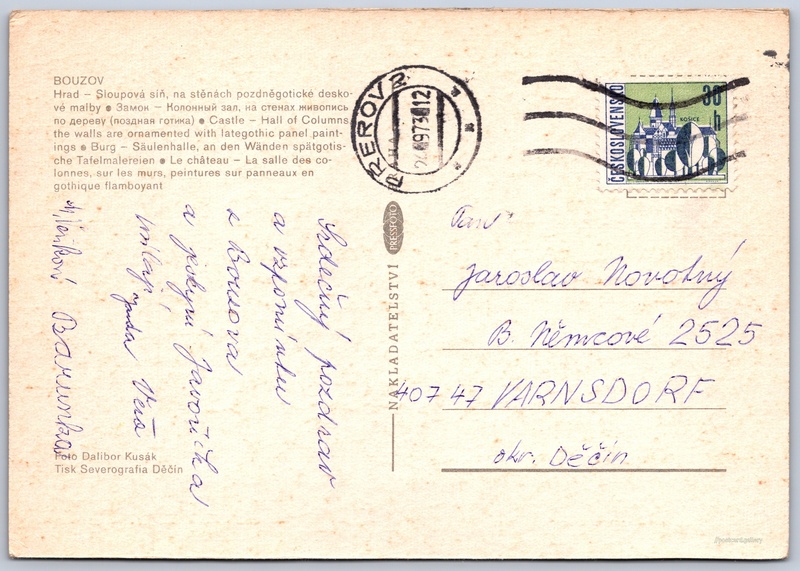 BOUZOV
Hrad – Sloupová síň, na stěnách pozdněgotické desko-
vé malby ● Замок – Колонный зал, на стенах живопись
по дереву (поздная готика) ● Castle – Hall of Columns,
the walls are ornamented with lategothic panel paint-
ings ● Burg – Säulenhalle, an den Wänden spätgotis-
che Tafelmalereien ● Le château – La salle des co-
lonnes, sur les murs, peintures sur panneaux en
gothique flamboyant
PŘEROV 2
ČESKOSLOVENSKO
30 h
KOŠICE
Srdečný pozdrav
a vzpomínku
z Bousova
a jeskyní Javoříčka
Věra
Barunka
NAKLADATELSTVÍ PRESSFOTO
Pan
Jaroslav Novotný
B. Němcové 2525
407 47 VARNSDORF
okr. Děčín
Foto Dalibor Kusák
Tisk Severografia Děčín